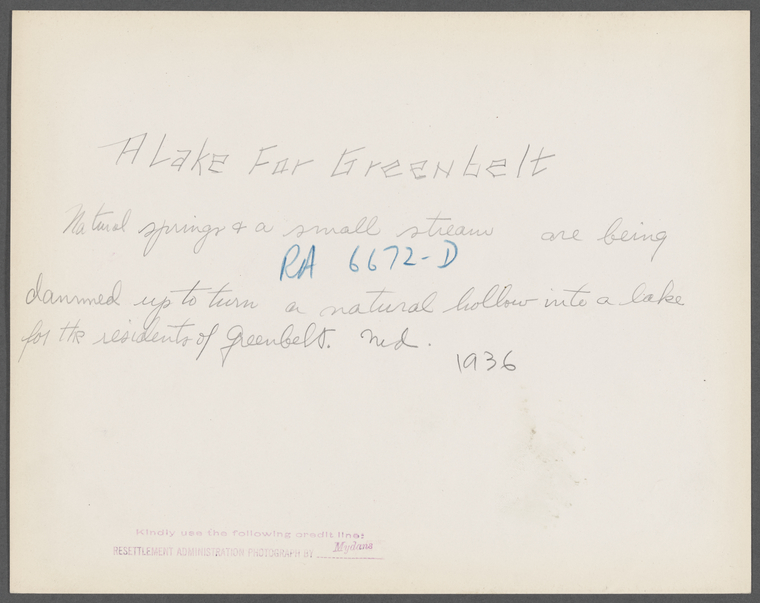 A Lake For Greenbelt
Natural springs & a small stream are being
RA 6672-D
dammed up to turn a natural hollow into a lake
for the residents of Greenbelt. Md.
1936
Kindly use the following credit line:
RESETTLEMENT ADMINISTRATION PHOTOGRAPH BY Mydans